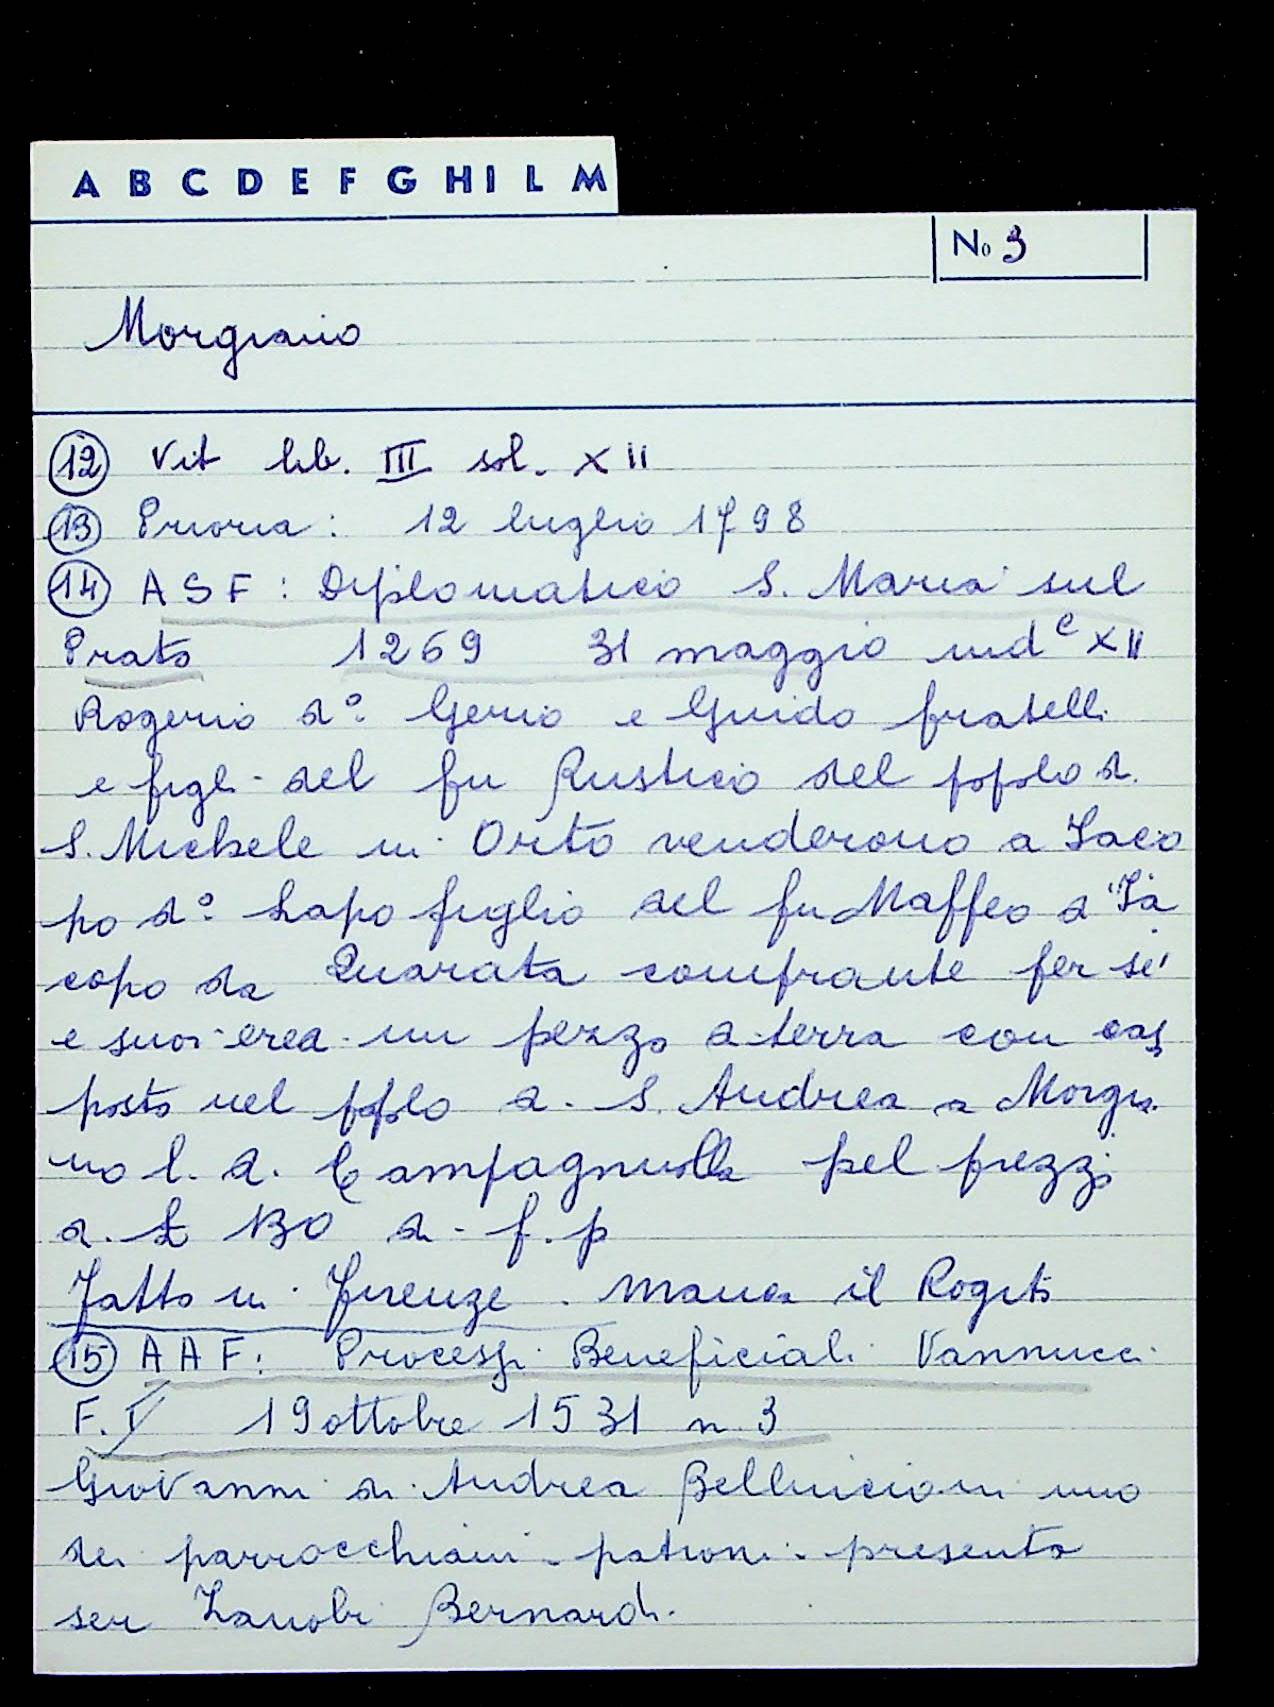 A B C D E F G H I L M
No 3
Morgiano
12 Vit lib. III sol. XII
13 Prioria: 12 luglio 1798
14 ASF: Diplomatico S. Maria sul
Prato 1269 31 maggio ind.e XII
Rogerio d.o Gerio e Guido fratelli
e figli del fu Rustico del popolo di
S. Michele in Orto venderono a Jaco
po d.o Lapo figlio del fu Maffeo di Ja
copo da Quarata comprante per sé
e suoi eredi un pezzo di terra con casa
posto nel popolo di S. Andrea a Morgia
no l. d. Campagnuolla pel prezzo
di £ 130 di f. p
Fatto in Firenze. Manca il Rogito
15 AAF: Processi Beneficiali Vannucci
F. V 19 ottobre 1531 n. 3
Giovanni di Andrea Bellincioni uno
dei parrocchiani patroni presenta
ser Zanobi Bernardi.